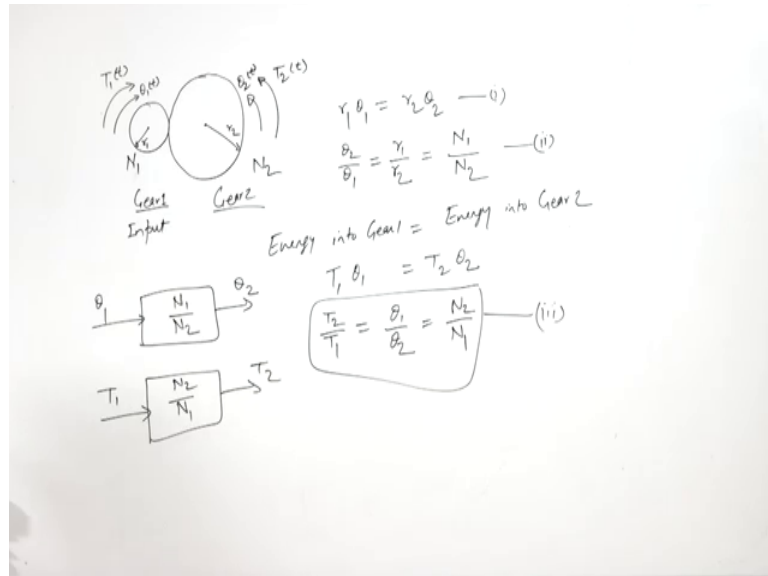 T₁(t) θ₁(t) θ₂(t) T₂(t)
r₁ r₂
N₁ N₂
Gear1 Gear2
Input
r₁θ₁ = r₂θ₂ —(i)
θ₂/θ₁ = r₁/r₂ = N₁/N₂ —(ii)
Energy into Gear1 = Energy into Gear2
T₁θ₁ = T₂θ₂
T₂/T₁ = θ₁/θ₂ = N₂/N₁ —(iii)
θ₁ N₁/N₂ θ₂
T₁ N₂/N₁ T₂